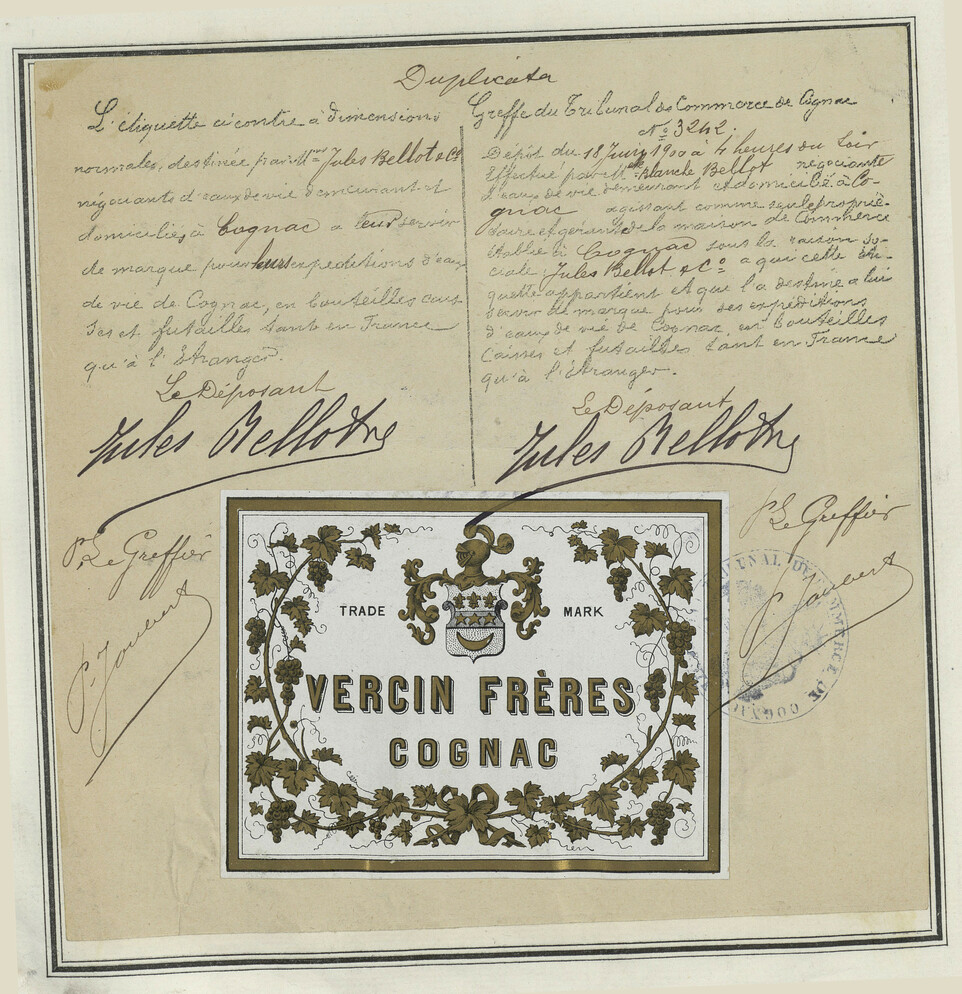 Duplicata
L'étiquette ci contre à dimensions
normales, destinée par Jules Bellot & Cº
négociants d'eaux de vie demeurant et
domiciliés à Cognac a leur servir
de marque pour leurs expéditions d'eaux
de vie de Cognac, en bouteilles cais-
ses et futailles tant en France
qu'à l'étranger.
Le Déposant
Jules Bellot & Cº
Pr Le Greffier
P. Joubert
Greffe du Tribunal de Commerce de Cognac
Nº 3242.
Dépôt du 18 Juin 1900 à 4 heures du soir
Effectué par Mlle Blanche Bellot négociante
d'eaux de vie demeurant et domicilié à Co-
gnac agissant comme seule proprié-
taire et gérante de la maison de Commerce
établie à Cognac sous la raison so-
ciale Jules Bellot & Cº a qui cette éti-
quette appartient et que l'a destiné a lui
servir de marque pour ses expéditions
d'eaux de vie de Cognac en bouteilles
Caisses et futailles tant en France
qu'à l'étranger.
Le Déposant
Jules Bellot & Cº
Pr Le Greffier
P. Joubert
TRIBUNAL DE COMMERCE DE COGNAC
TRADE MARK
VERCIN FRÈRES
COGNAC